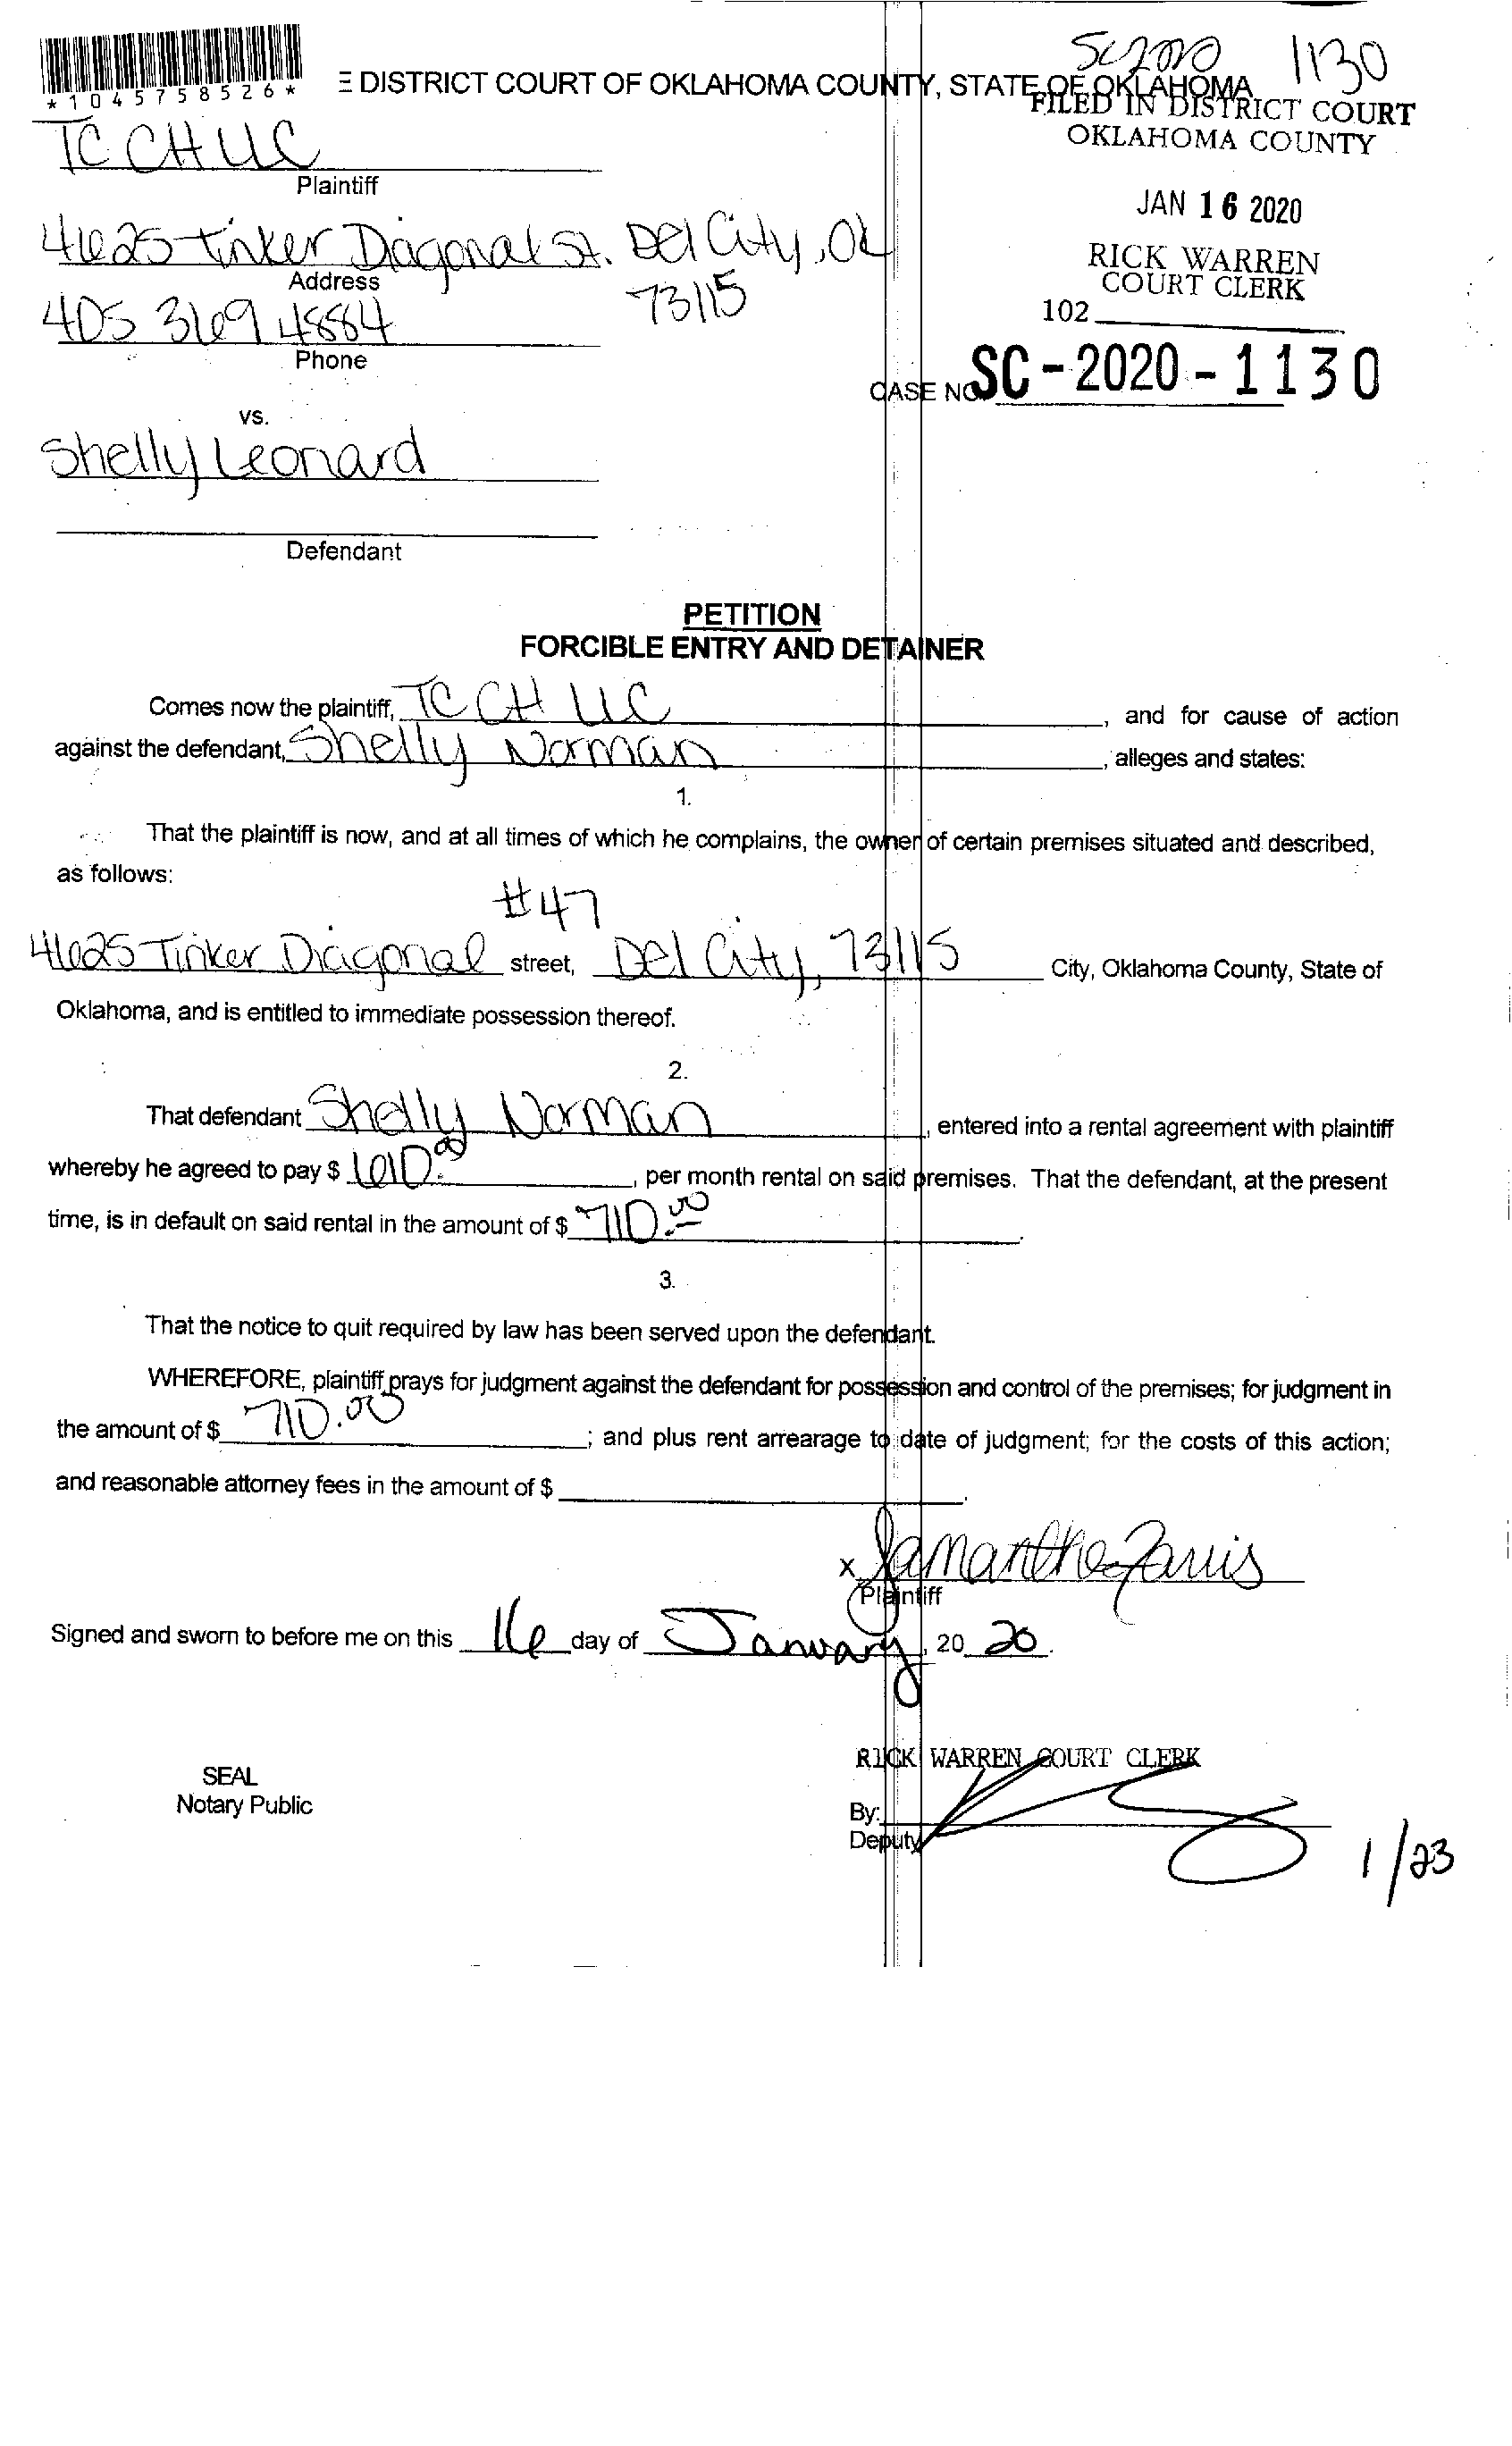 SC2020 1130
*1045758526*
E DISTRICT COURT OF OKLAHOMA COUNTY, STATE OF OKLAHOMA
FILED IN DISTRICT COURT
OKLAHOMA COUNTY
TC CH LLC
Plaintiff
JAN 16 2020
4625 Tinker Diagonal St. Del City, OK
73115
Address
RICK WARREN
COURT CLERK
102
405 369 4884
Phone
CASE NO. SC-2020-1130
vs.
Shelly Leonard
Defendant
PETITION
FORCIBLE ENTRY AND DETAINER
Comes now the plaintiff, TC CH LLC, and for cause of action
against the defendant, Shelly Norman, alleges and states:
1.
That the plaintiff is now, and at all times of which he complains, the owner of certain premises situated and described,
as follows:
#47
4625 Tinker Diagonal street, Del City, 73115 City, Oklahoma County, State of
Oklahoma, and is entitled to immediate possession thereof.
2.
That defendant Shelly Norman, entered into a rental agreement with plaintiff
whereby he agreed to pay $ 610.00, per month rental on said premises. That the defendant, at the present
time, is in default on said rental in the amount of $ 710.00.
3.
That the notice to quit required by law has been served upon the defendant.
WHEREFORE, plaintiff prays for judgment against the defendant for possession and control of the premises; for judgment in
the amount of $ 710.00; and plus rent arrearage to date of judgment; for the costs of this action;
and reasonable attorney fees in the amount of $ .
x Samantha Farris
Plaintiff
Signed and sworn to before me on this 16 day of January, 20 20.
RICK WARREN COURT CLERK
SEAL
Notary Public
By:
Deputy
1/23